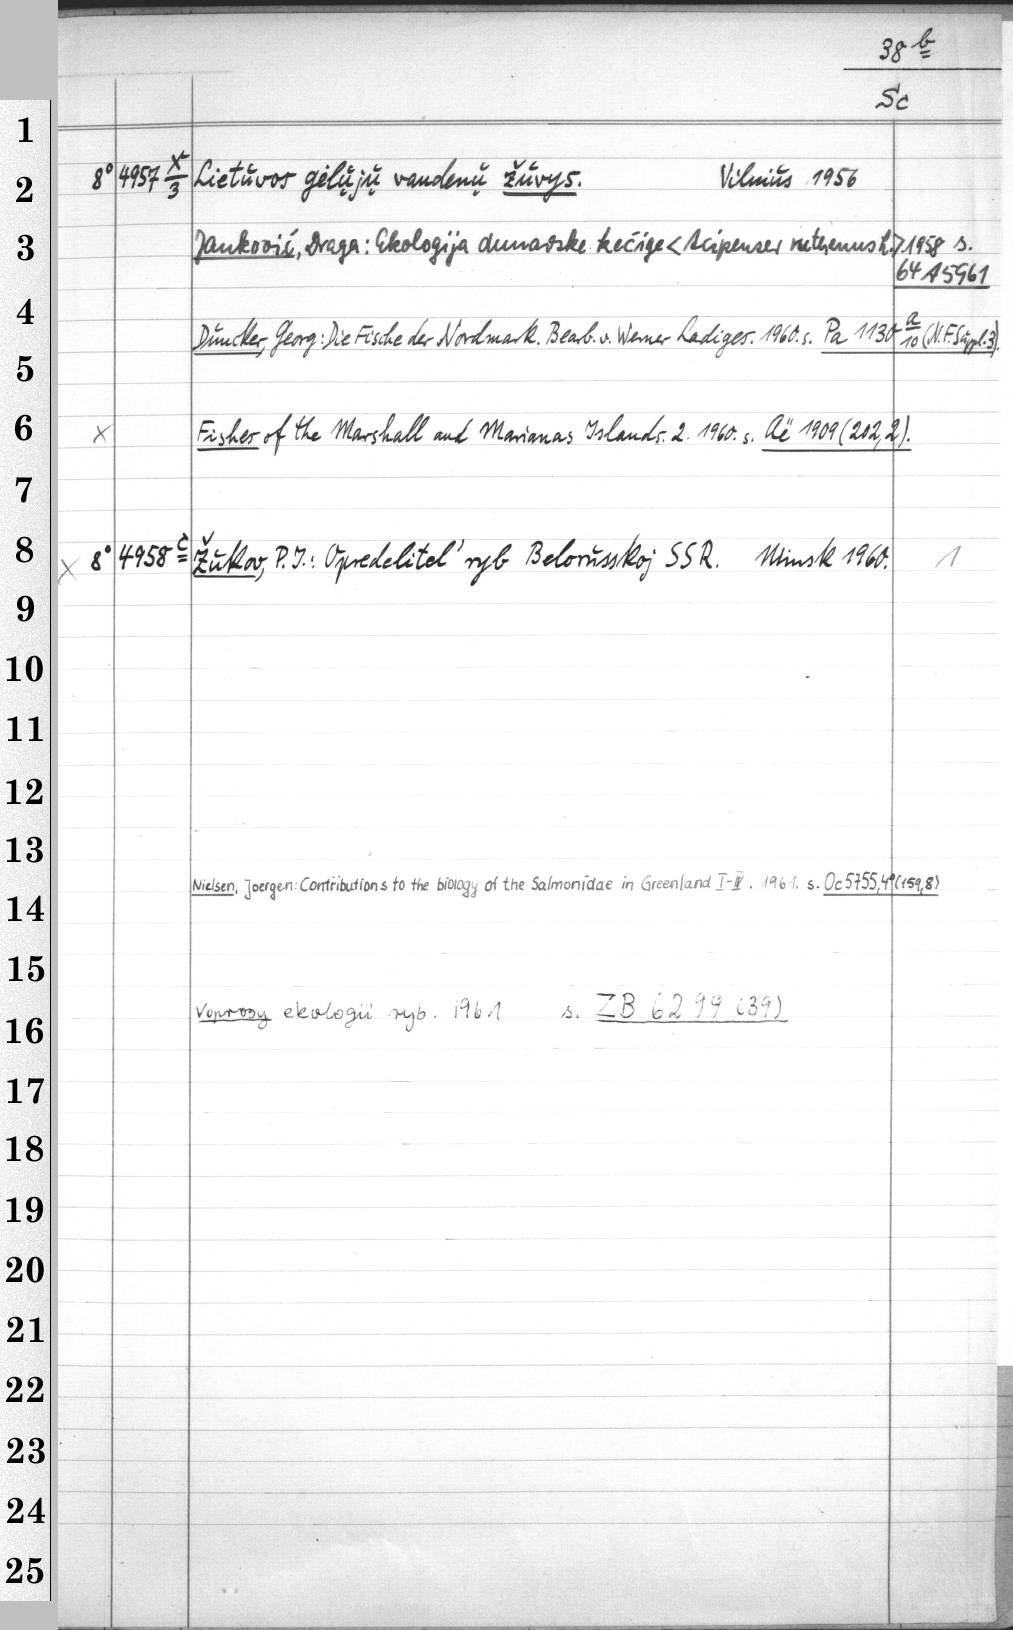 38 b
Sc
1
2 8° 4957 x/3 Lietuvos gėlųjų vandenų žuvys. Vilnius 1956
3 Janković, Draga: Ekologija dunavske kečige <Acipenser ruthenus L.> 1958 s.
64 A 5961
4
Duncker, Georg: Die Fische der Nordmark. Bearb. v. Werner Ladiges. 1960. s. Pa 1130 a/10 (N.F. Suppl. 3).
5
6 x Fishes of the Marshall and Marianas Islands. 2. 1960. s. Aë 1909 (202,2).
7
8 x 8° 4958 c Žukov, P. I.: Opredelitel' ryb Belorusskoj SSR. Minsk 1960. 1
9
10
11
12
13
Nielsen, Joergen: Contributions to the biology of the Salmonidae in Greenland I-IV. 1961. s. Oc 5755,4° (159,8)
14
15
Voprosy ekologii ryb. 1961 s. ZB 6299 (39)
16
17
18
19
20
21
22
23
24
25